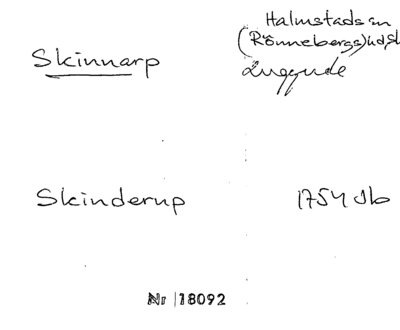 Halmstads sn
Skinnarp (Rönnebergs) hd, sk
Luggude
Skinderup 1754 Jb
Nr 18092